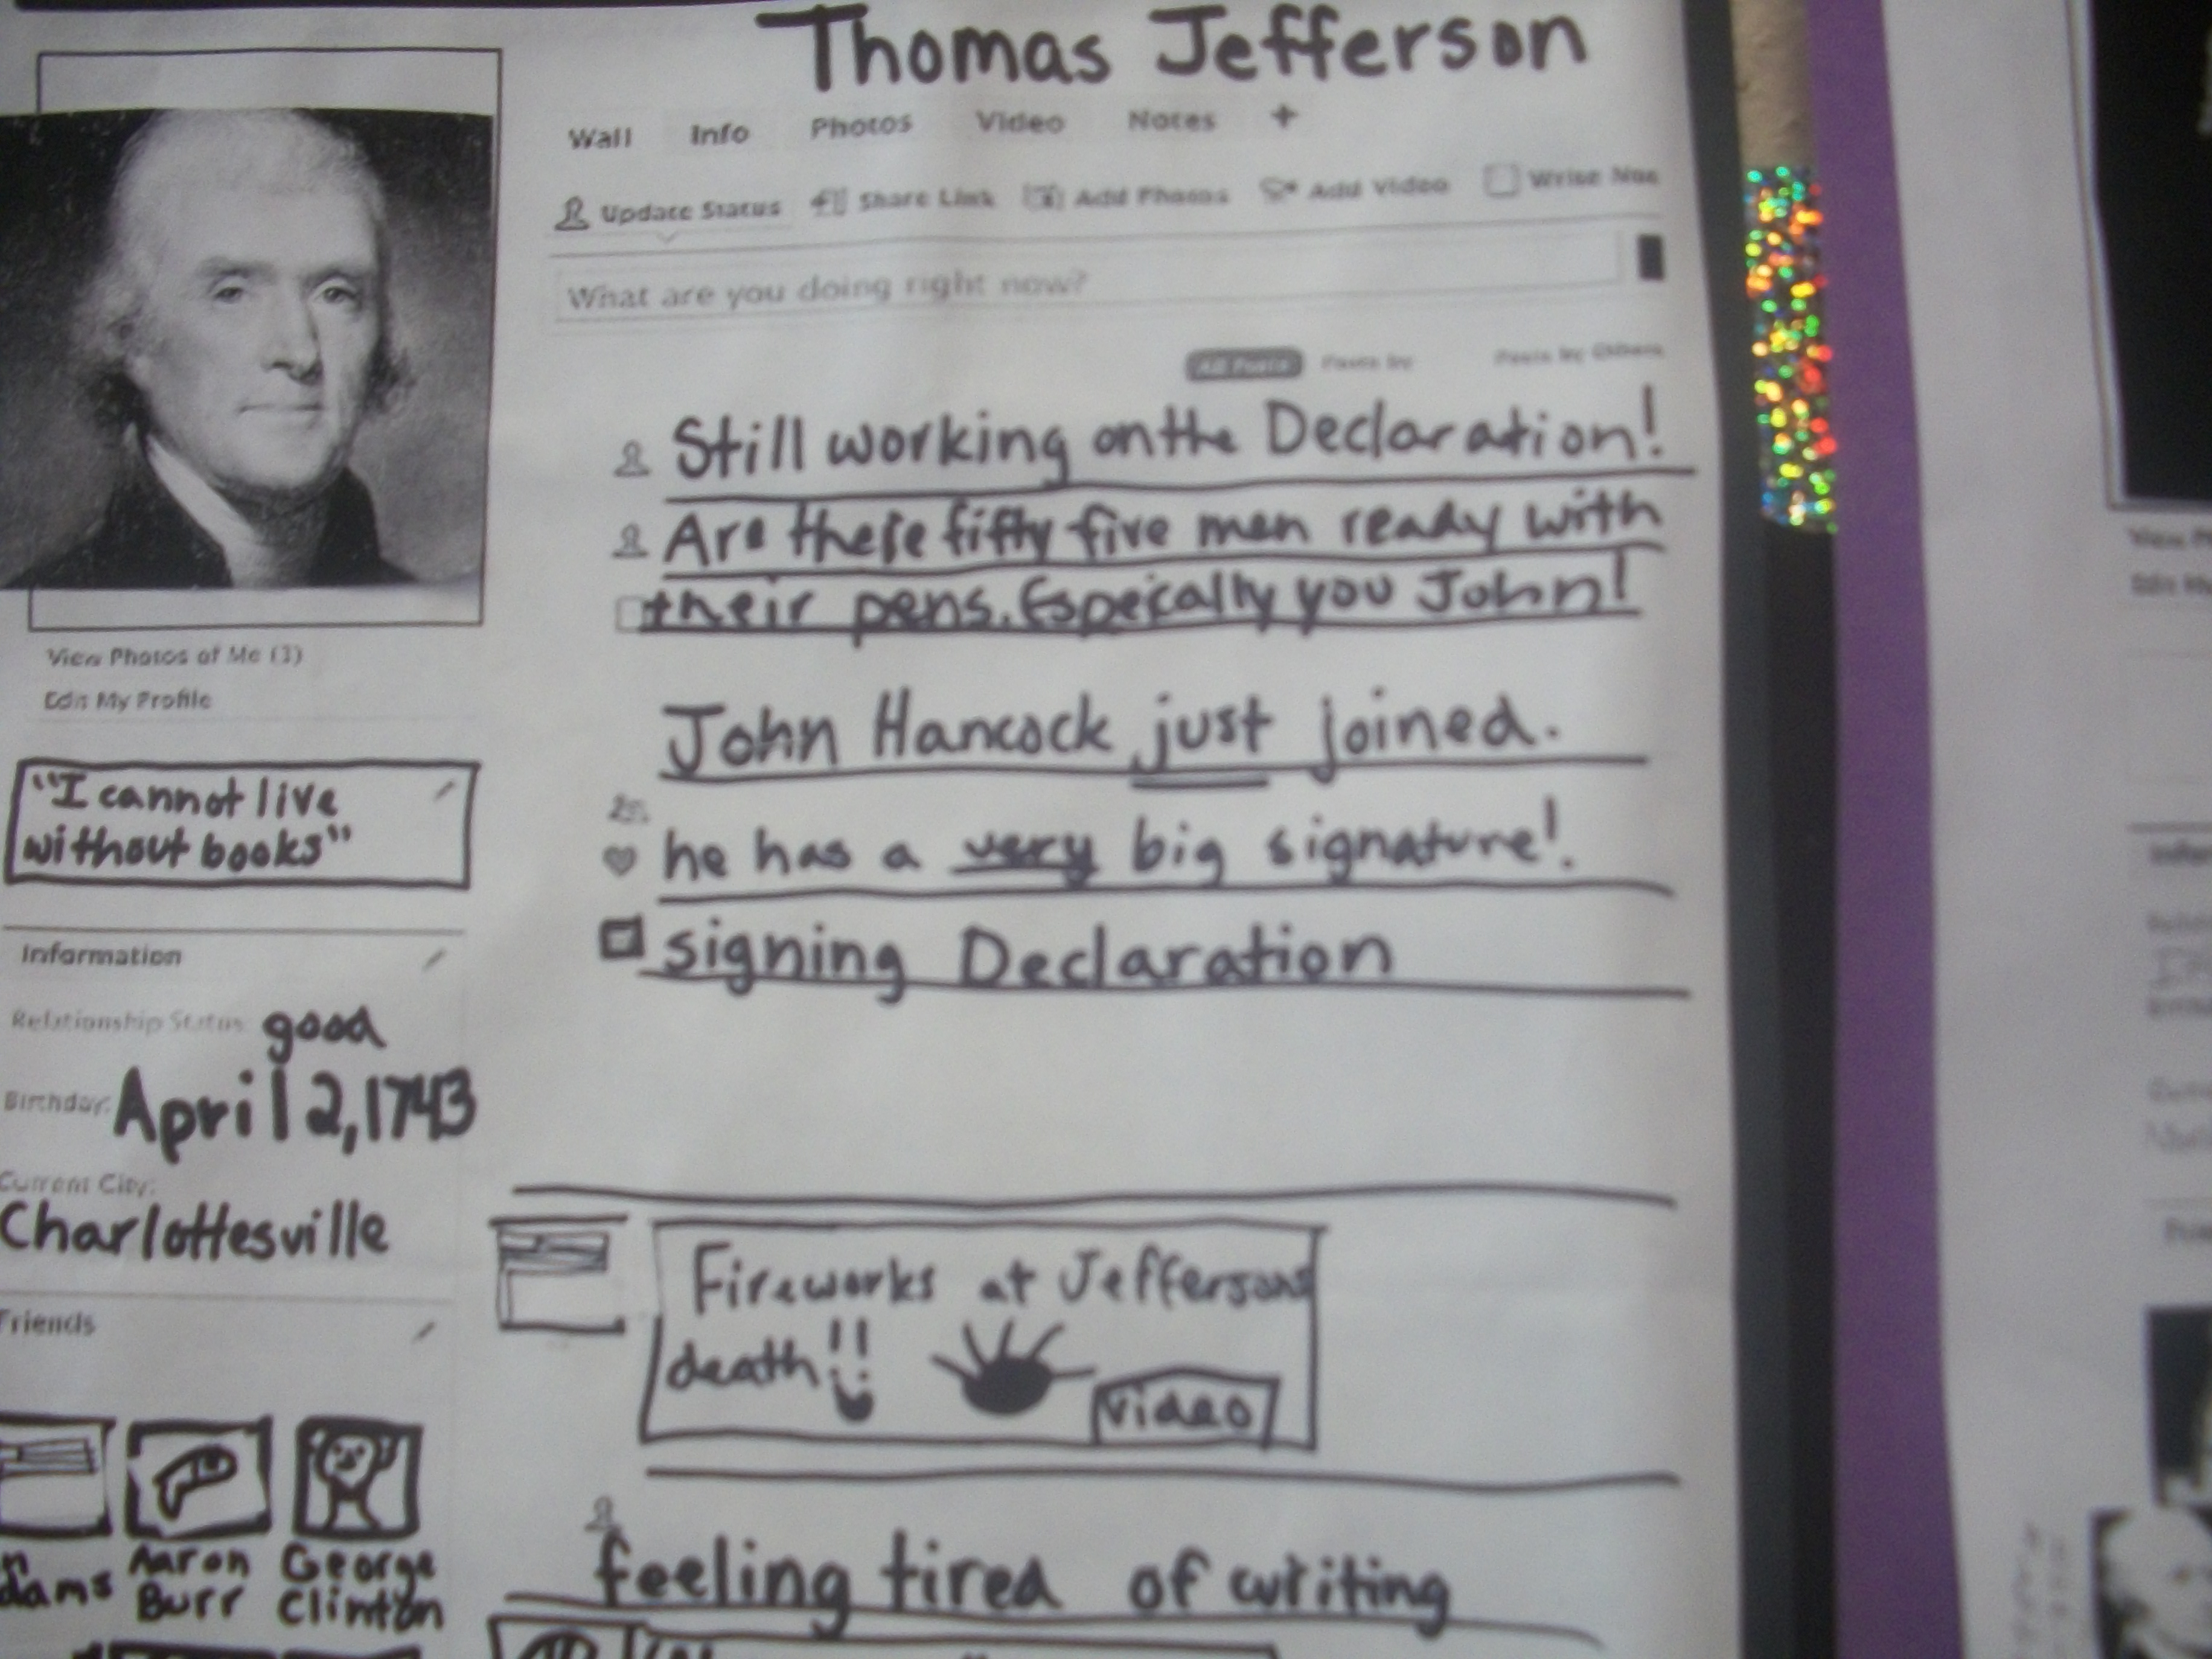 Thomas Jefferson
Wall Info Photos Video Notes +
Update Status Share Link Add Photos Add Video Write Not
What are you doing right now?
All Posts Posts by Posts by Others
Still working on the Declaration!
Are these fifty five men ready with
their pens. Especially you John!
John Hancock just joined.
he has a very big signature!
signing Declaration
Fireworks at Jeffersons
death!!
video
feeling tired of writing
View Photos of Me (1)
Edit My Profile
"I cannot live
without books"
Information
Relationship Status: good
Birthday: April 2, 1743
Current City:
Charlottesville
Friends
n
dams
Aaron
Burr
George
Clinton